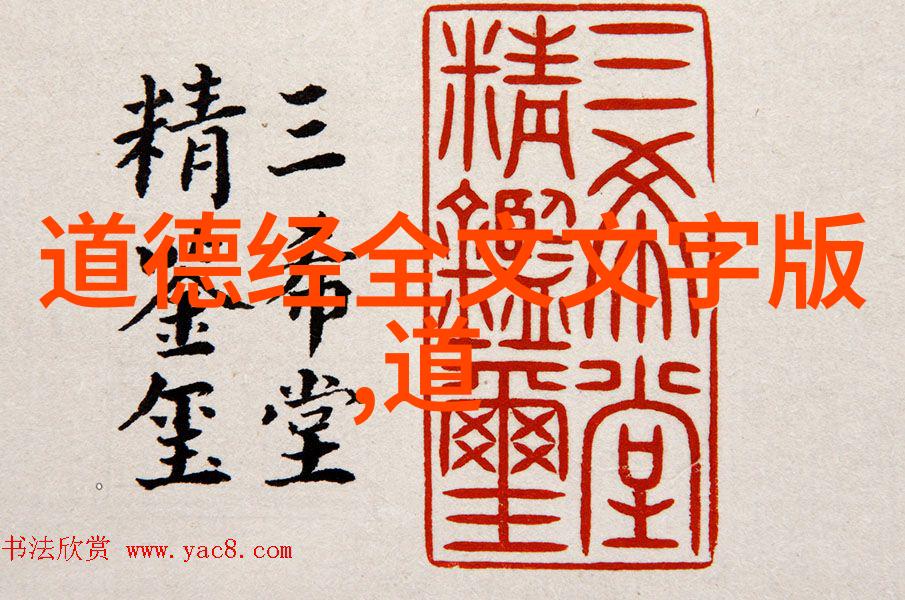 三希堂
精鉴玺
三希堂
精鑑璽
道德经全文文字版
,道
书法欣赏 www.yac8.com